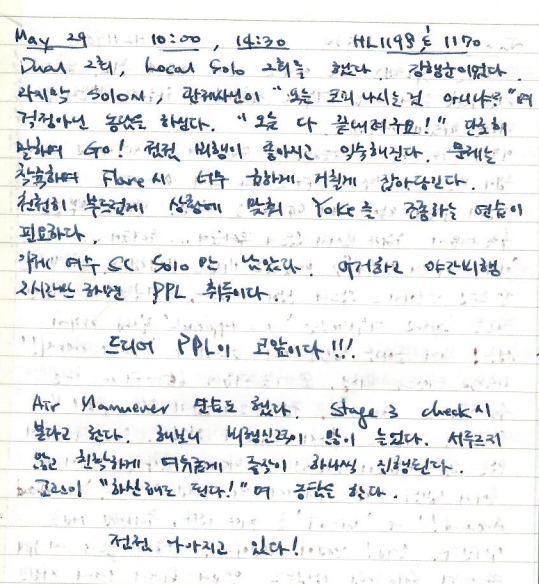 May 29 10:00, 14:30 HL1198 & 1170
Dual 2회, Local Solo 2회를 했다. 강행군이었다.
마지막 Solo시, 관제사님이 "오늘 코피 나시는 것 아니냐?"며
걱정아닌 농담을 하셨다. "오늘 다 끝내려구요!" 단호히
말하며 Go! 점점 비행이 좋아지고 익숙해진다. 문제는
착륙하며 Flare시 너무 급하게 거칠게 잡아당긴다.
천천히 부드럽게 상황에 맞춰 Yoke를 조종하는 연습이
필요하다.
이제 여수 SC Solo만 남았다. 이거하고 야간비행
2시간만 하면 PPL 취득이다
드디어 PPL이 코앞이다!!!
Air Manuever 연습도 했다. Stage 3 check시
본다고 한다. 해보니 비행실력이 많이 늘었다. 서두르지
않고 침착하게 여유롭게 동작이 하나씩 진행된다.
교관이 "하산해도 된다!"며 농담을 한다.
점점 나아지고 있다!